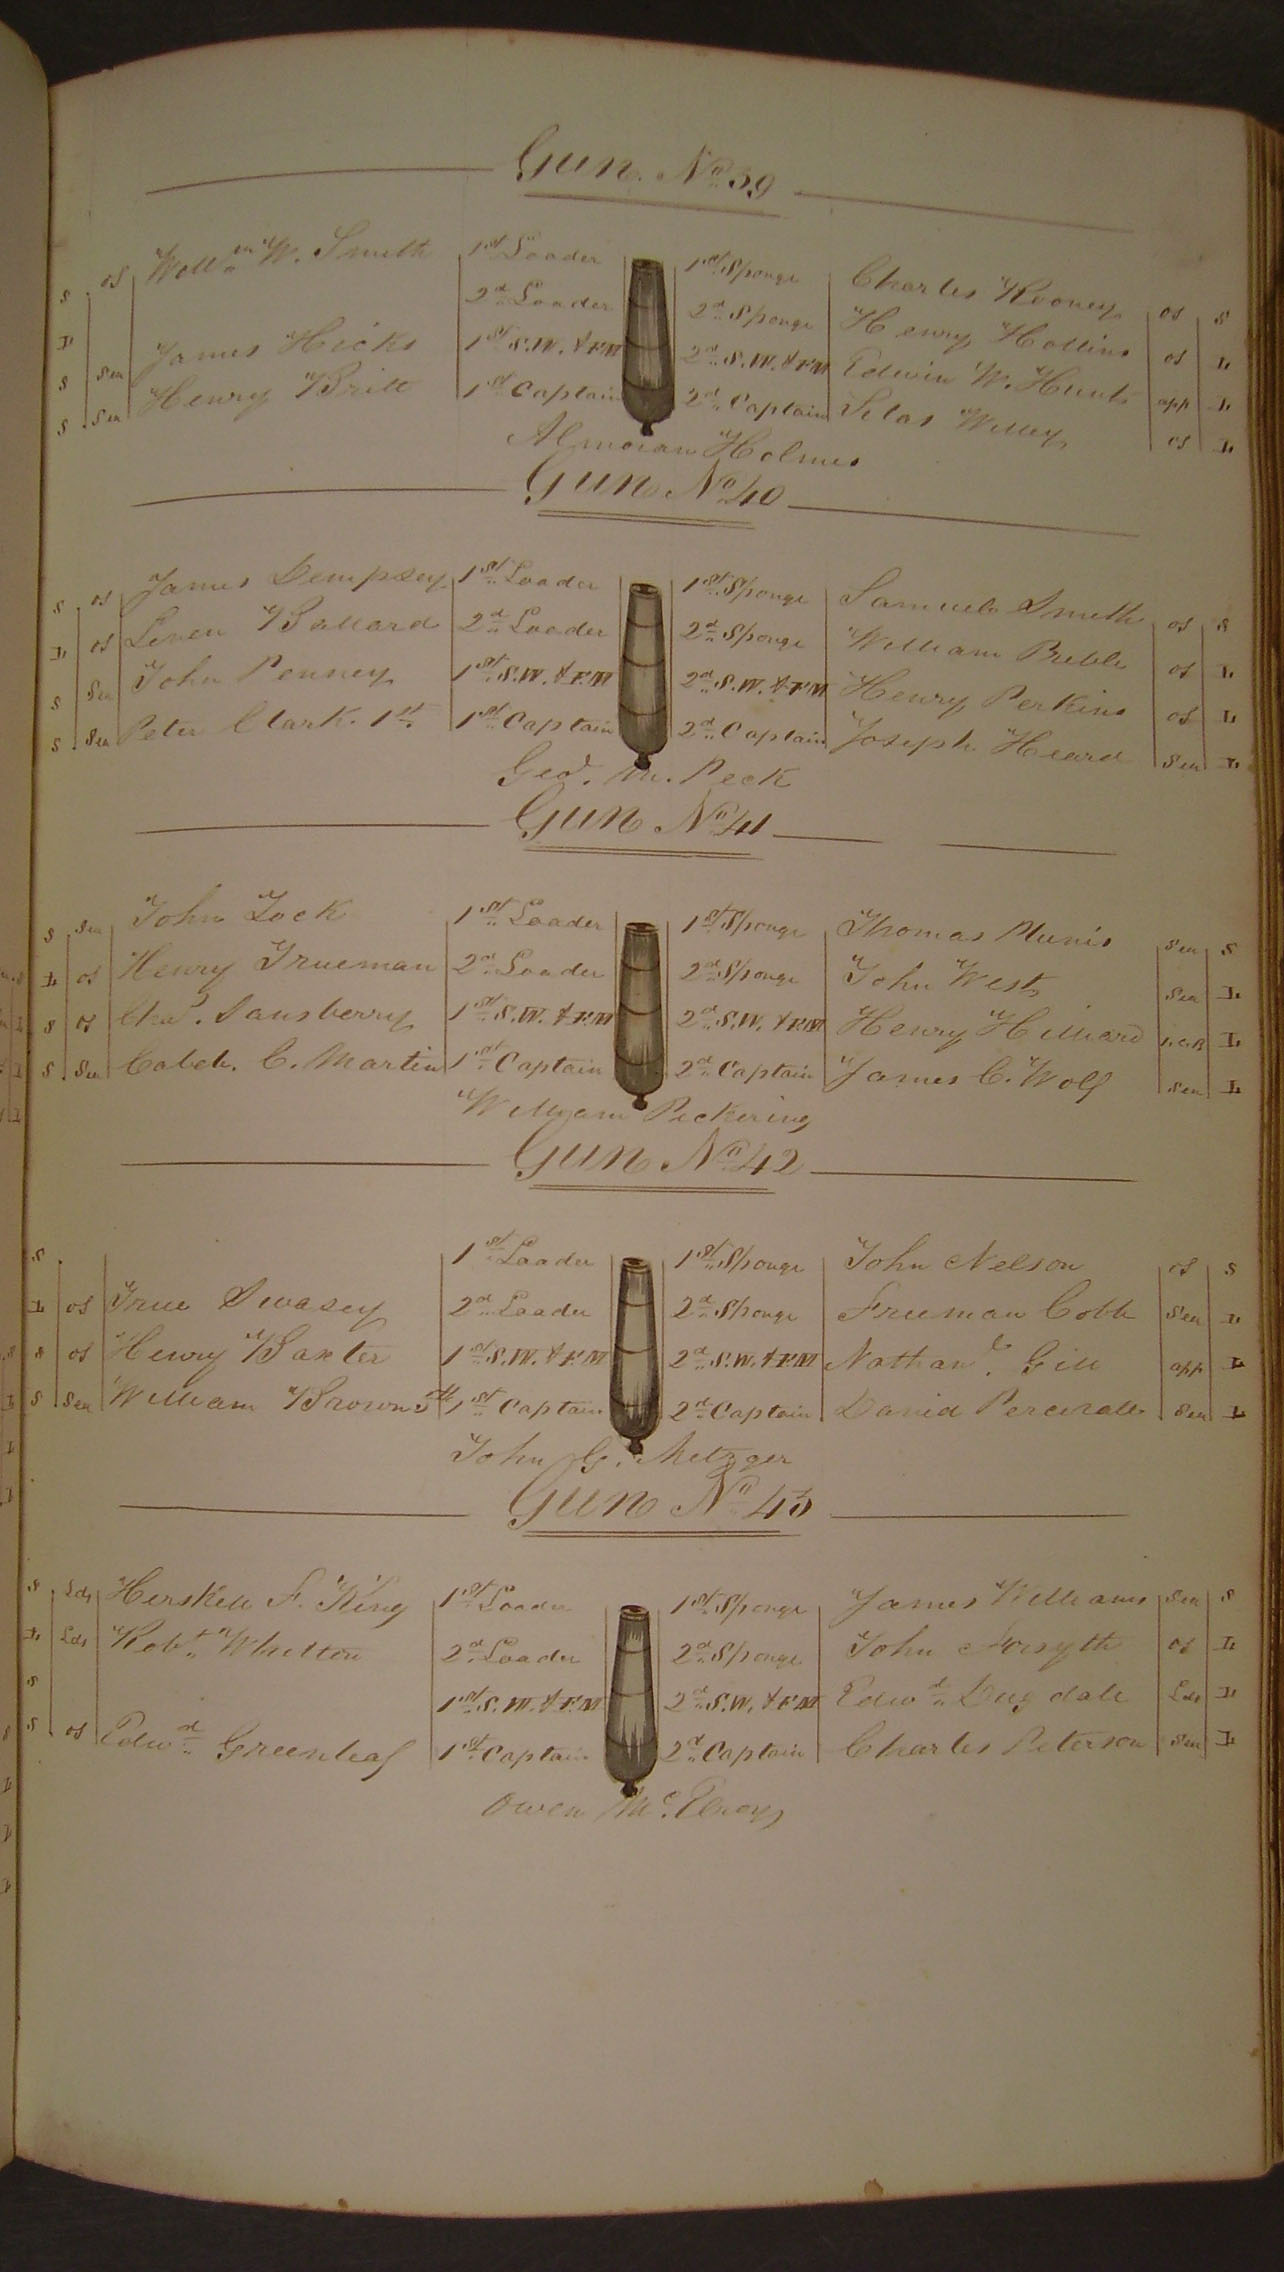 Gun. No. 39
S os Willm W. Smith 1st Loader 1st Sponge Charles Rooney os S
L 2d Loader 2d Sponge Henry Hollins os L
S Sea James Hicks 1st S.W. & F.M 2d S.W. & F.M Edwin W. Hunt app L
S Sea Henry Britt 1st Captain 2d Captain Silas Willey os L
Almoran Holmes
Gun No 40
S os James Dempsey 1st Loader 1st Sponge Samuel Smith os S
L os Leven Ballard 2d Loader 2d Sponge William Preble os L
S Sea John Penney 1st S.W. & F.M 2d S.W. & F.M Henry Perkins os L
S Sea Peter Clark. 1st 1st Captain 2d Captain Joseph Heard Sea L
Geo. M. Peck
Gun No 41
S Sea John Lock 1st Loader 1st Sponge Thomas Munis Sea S
L os Henry Trueman 2d Loader 2d Sponge John West Sea L
S os Chas. Sansberry 1st S.W. & F.M 2d S.W. & F.M Henry Hilliard L
S Sea Caleb. C. Martin 1st Captain 2d Captain James C. Wolf Sea L
William Pickering
Gun No 42
S 1st Loader 1st Sponge John Nelson os S
L os True Swasey 2d Loader 2d Sponge Freeman Cobb Sea L
S os Henry Baxter 1st S.W. & F.M 2d S.W. & F.M Nathanl. Gill app L
S Sea William Brown 5th 1st Captain 2d Captain David Percivall Sea L
John G. Metzger
Gun No 43
S Lds Herskell F. King 1st Loader 1st Sponge James Williams Sea S
L Lds Robt. Whitton 2d Loader 2d Sponge John Forsyth os L
S 1st S.W. & F.M 2d S.W. & F.M Edwd Dugdale Lds L
S os Edwd Greenleaf 1st Captain 2d Captain Charles Peterson Sea L
Owen Mc. Elroy